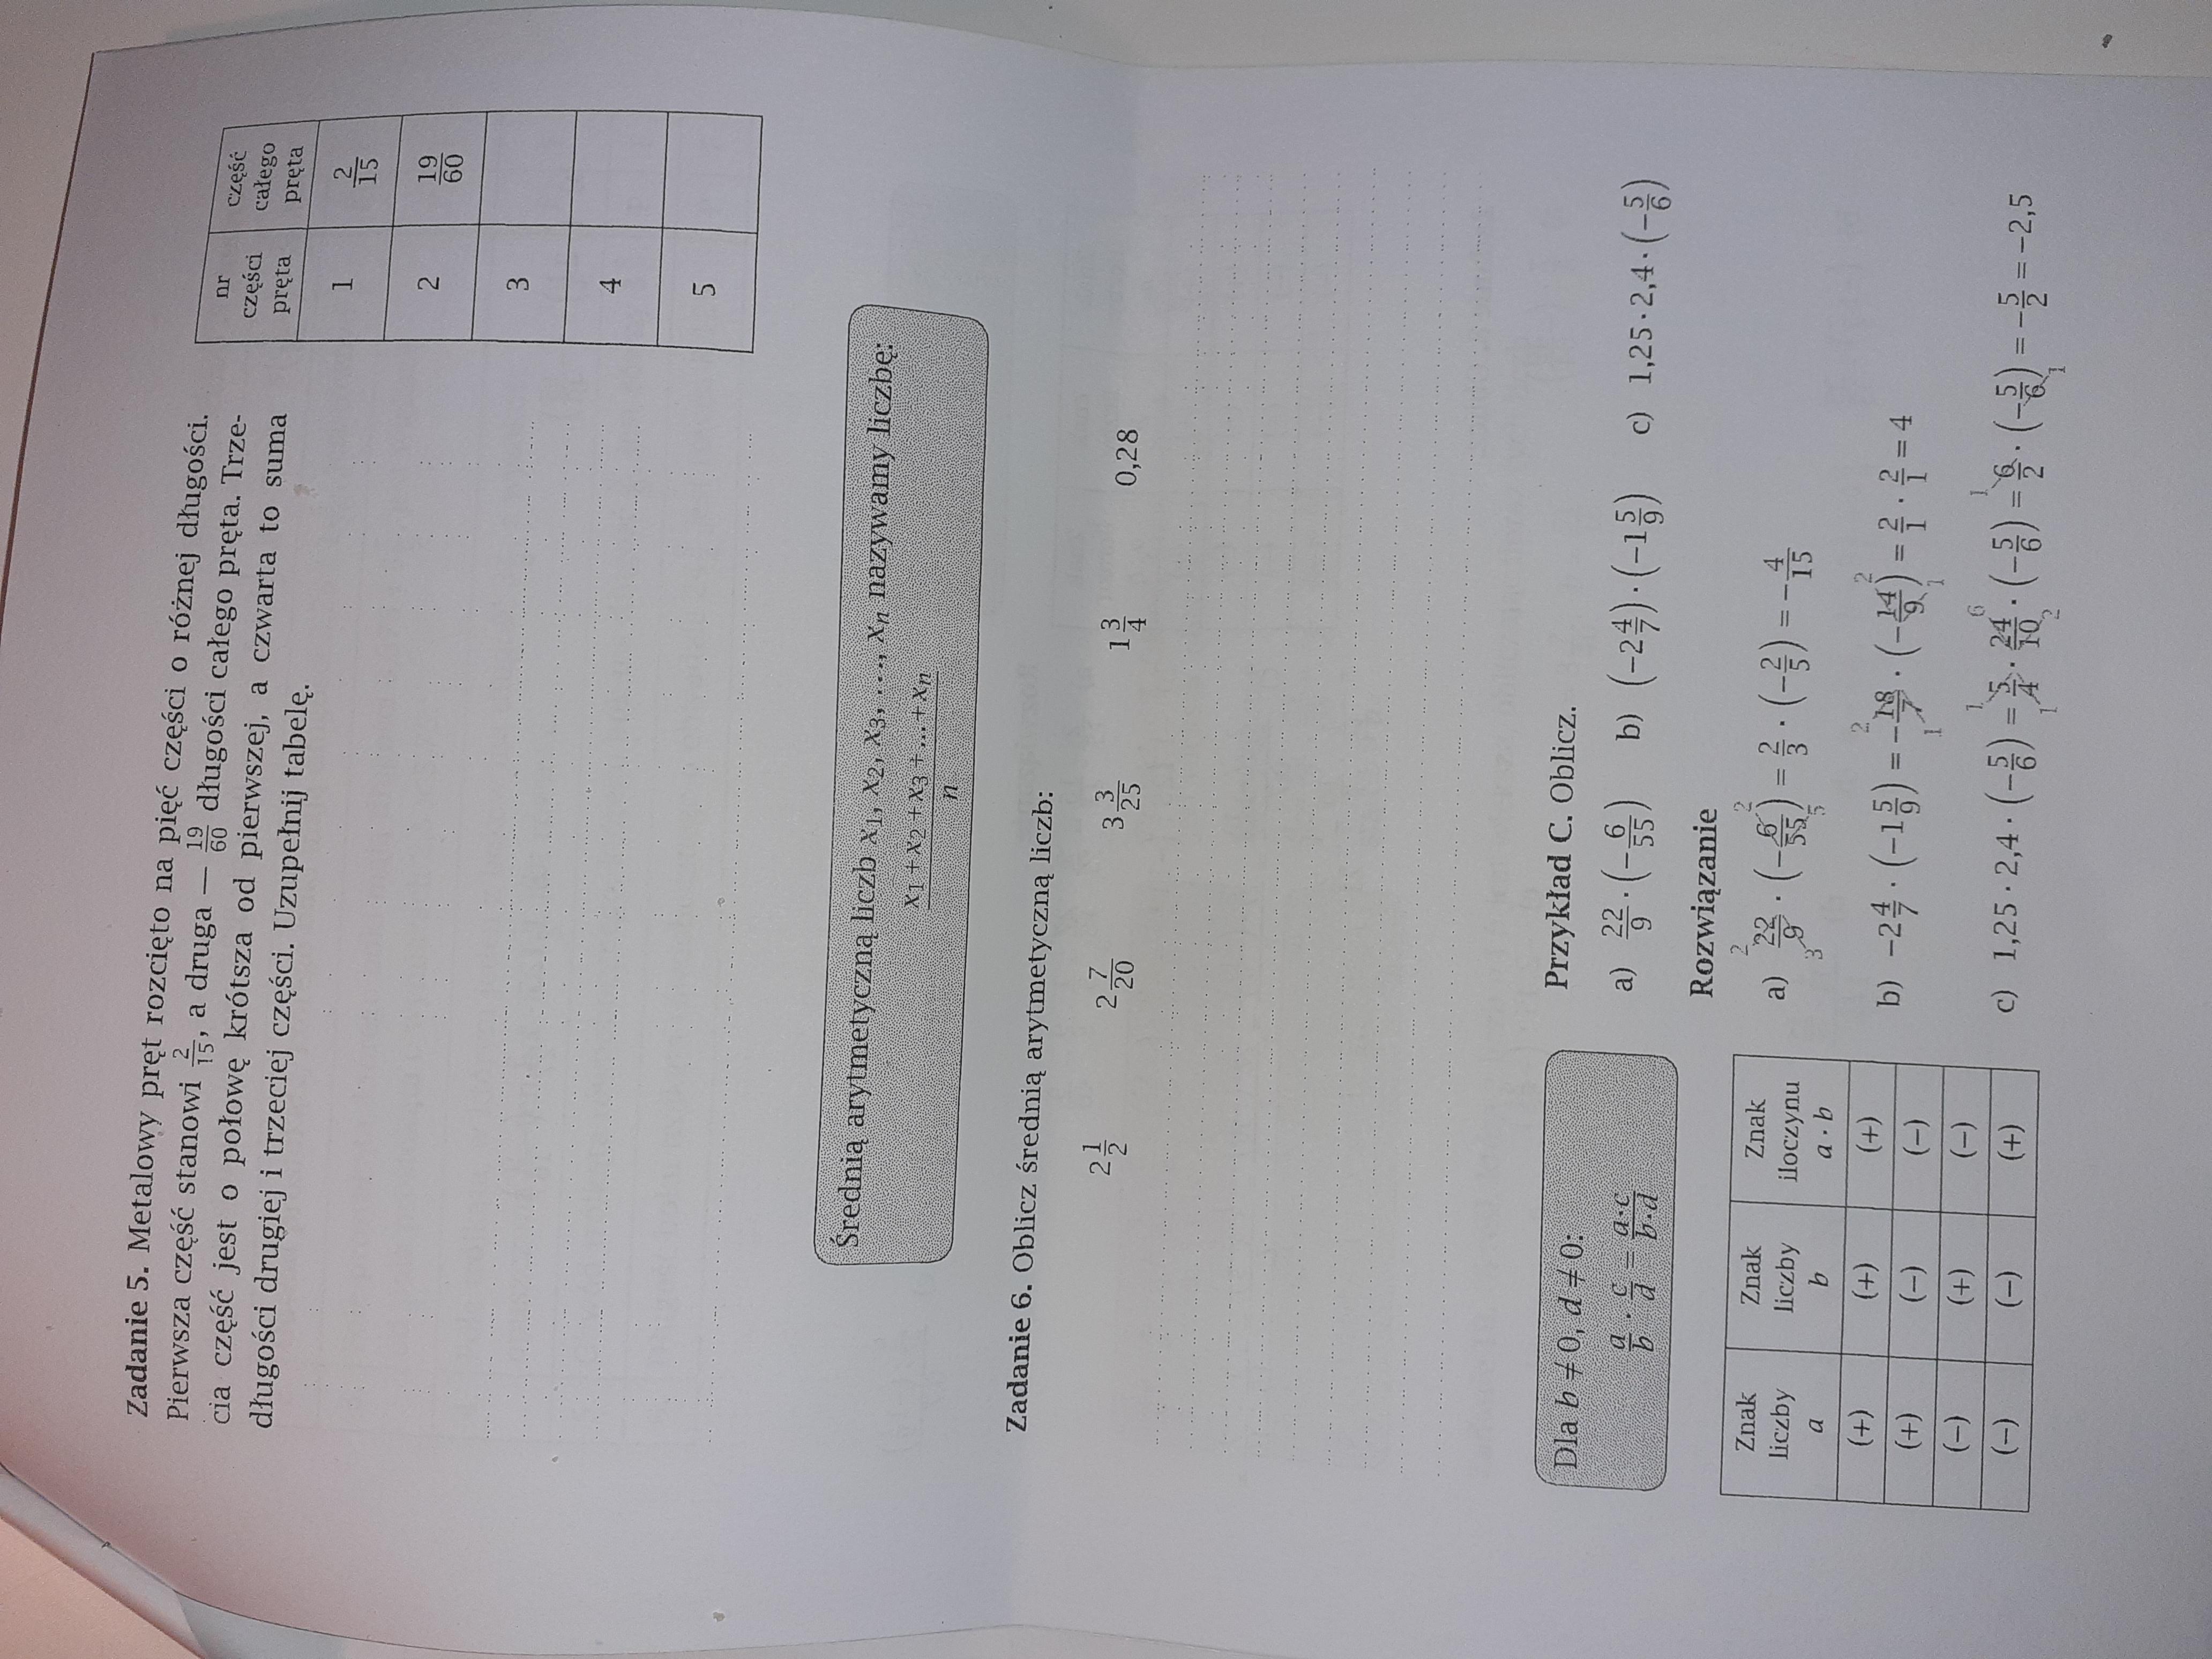 Zadanie 5. Metalowy pręt rozcięto na pięć części o różnej długości.
Pierwsza część stanowi 2/15, a druga — 19/60 długości całego pręta. Trze-
cia część jest o połowę krótsza od pierwszej, a czwarta to suma
długości drugiej i trzeciej części. Uzupełnij tabelę.
nr części pręta | część całego pręta
1 | 2/15
2 | 19/60
3
4
5
Średnią arytmetyczną liczb x₁, x₂, x₃, ..., xₙ nazywamy liczbę:
(x₁+x₂+x₃+...+xₙ)/n
Zadanie 6. Oblicz średnią arytmetyczną liczb:
2 1/2 2 7/20 3 3/25 1 3/4 0,28
Dla b ≠ 0, d ≠ 0:
a/b · c/d = a·c/b·d
Znak liczby a | Znak liczby b | Znak iloczynu a · b
(+) | (+) | (+)
(+) | (−) | (−)
(−) | (+) | (−)
(−) | (−) | (+)
Przykład C. Oblicz.
a) 22/9 · (−6/55) b) (−2 4/7) · (−1 5/9) c) 1,25 · 2,4 · (−5/6)
Rozwiązanie
a) 22/9 · (−6/55) = 2/3 · (−2/5) = −4/15
b) −2 4/7 · (−1 5/9) = −18/7 · (−14/9) = 2/1 · 2/1 = 4
c) 1,25 · 2,4 · (−5/6) = 5/4 · 24/10 · (−5/6) = 6/2 · (−5/6) = −5/2 = −2,5